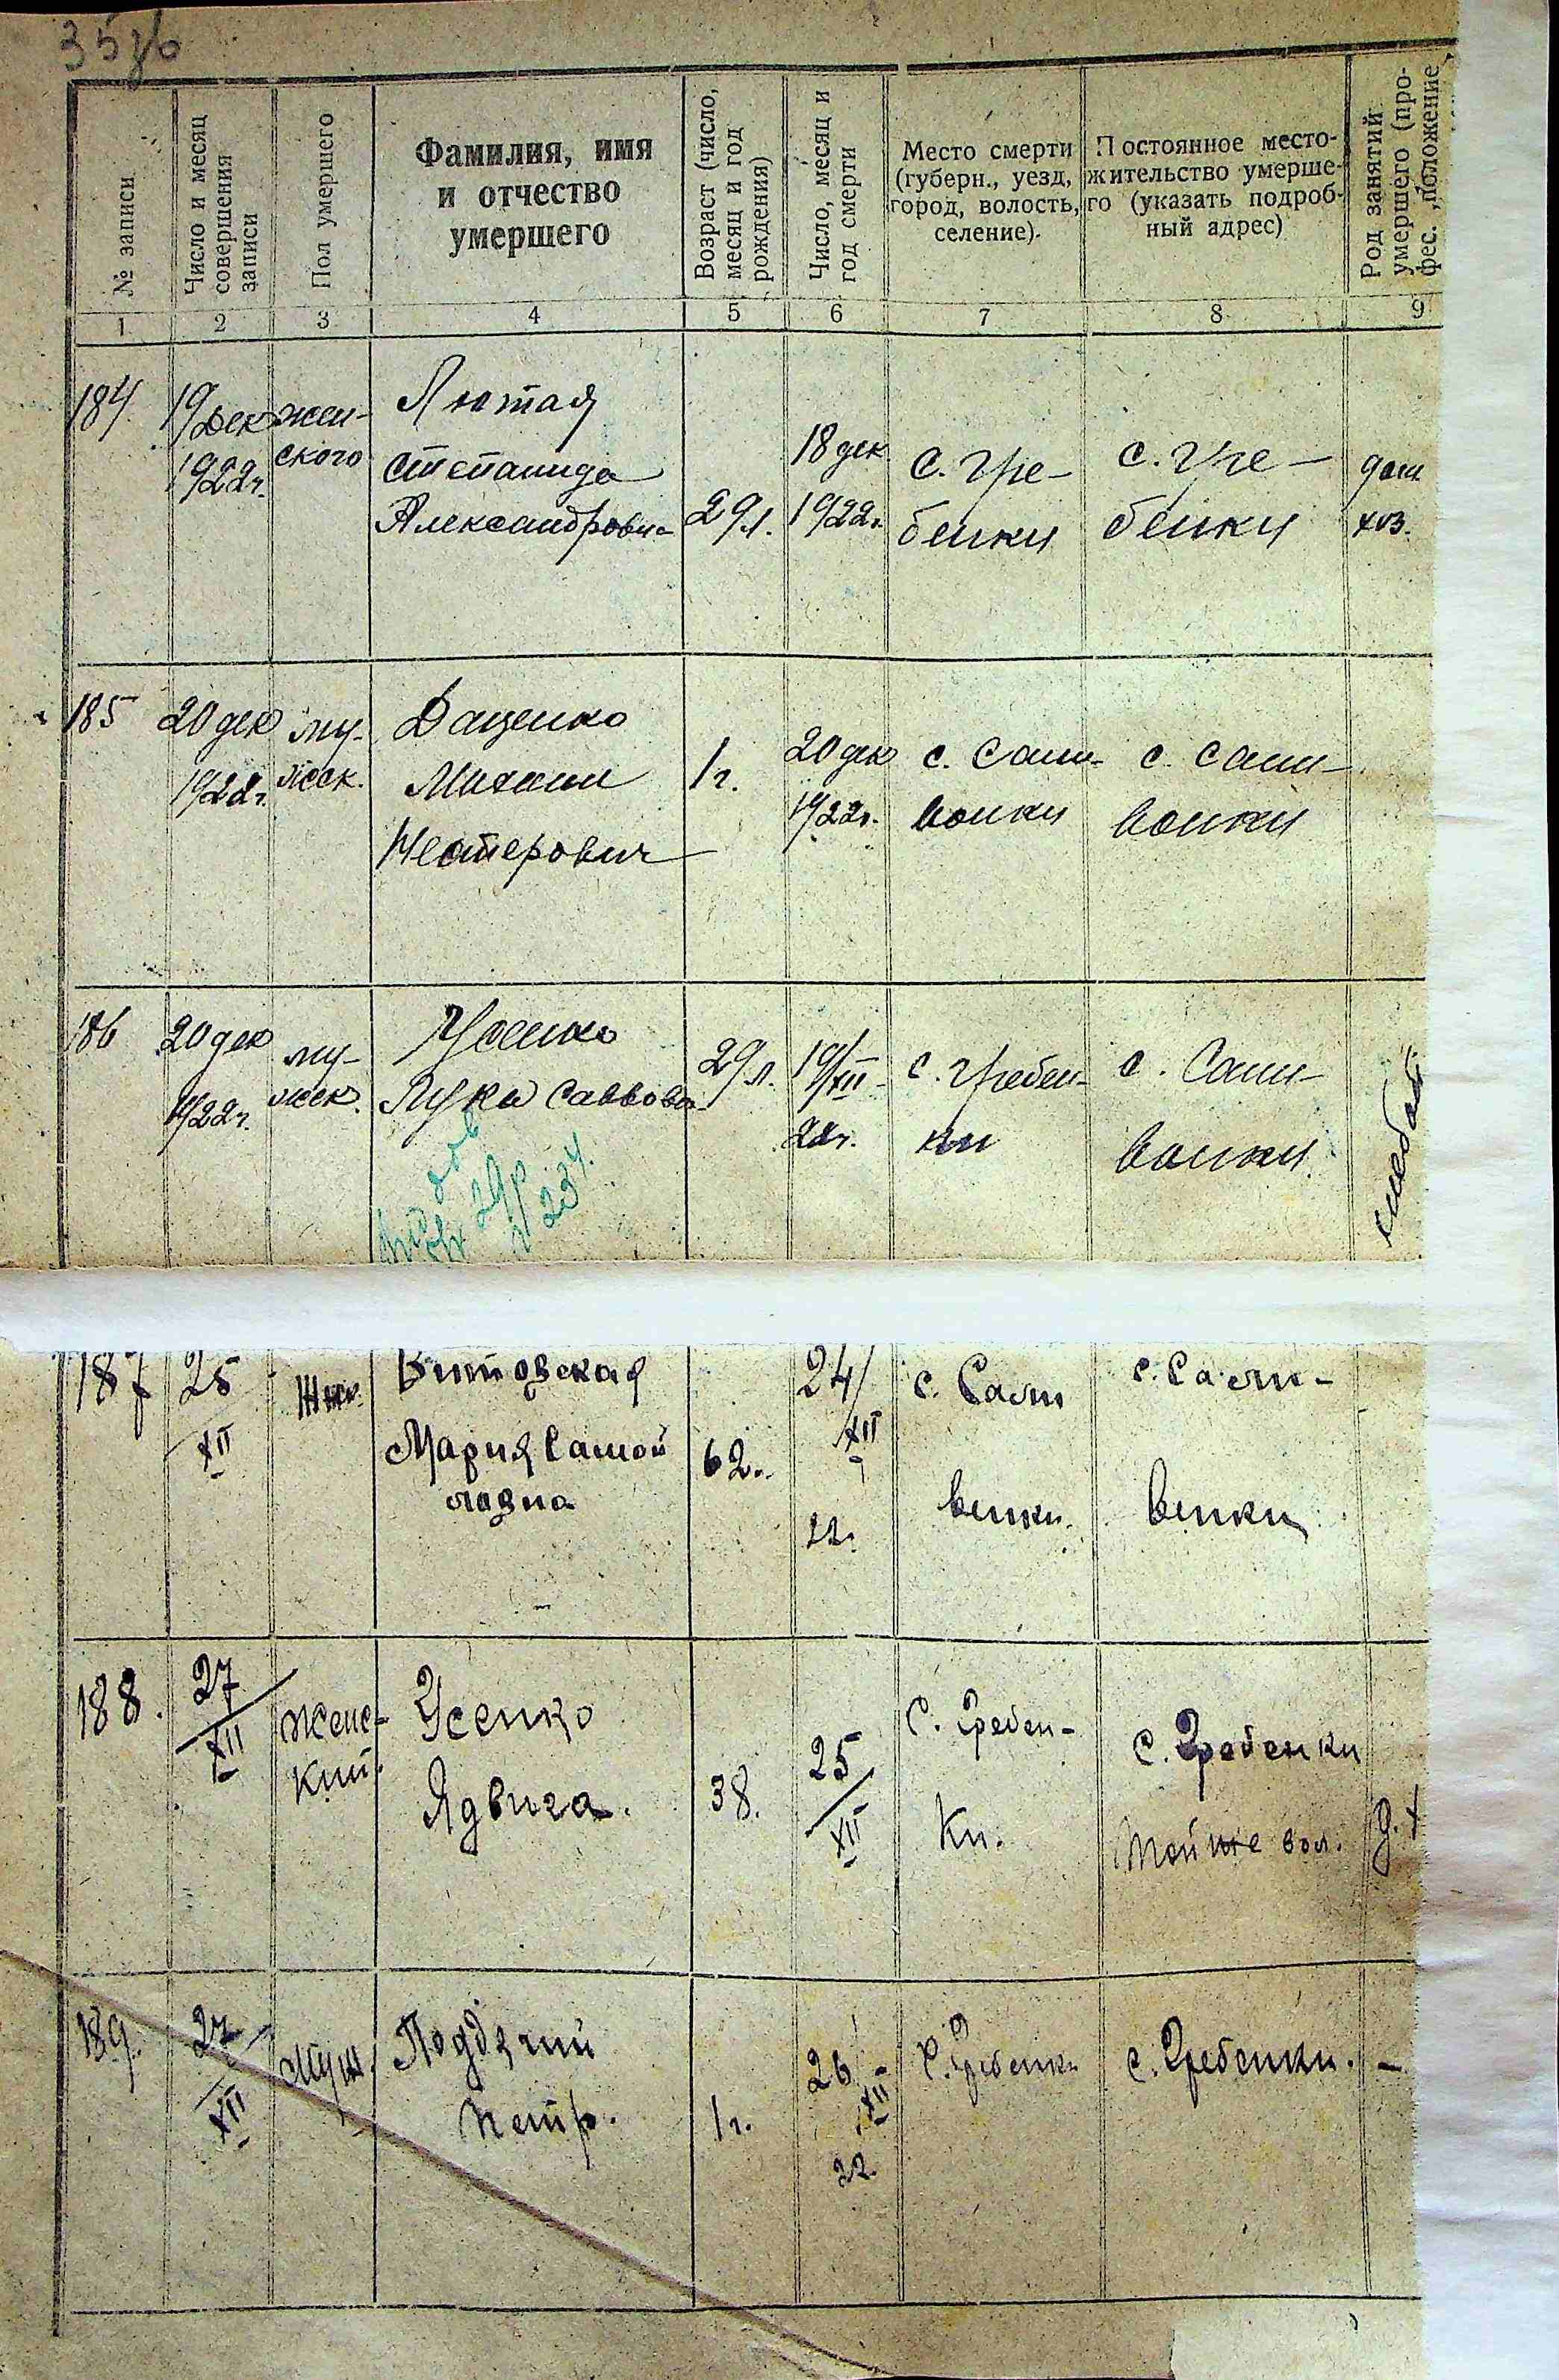 № записи
Число и месяц
совершения
записи
Пол умершего
Фамилия, имя
и отчество
умершего
Возраст (число,
месяц и год
рождения)
Число, месяц и
год смерти
Место смерти
(губерн., уезд,
город, волость,
селение).
Постоянное место-
жительство умерше-
го (указать подроб-
ный адрес)
Род занятий
умершего (про-
фес., положение
1 2 3 4 5 6 7 8 9
184 19 дек
1922г.
жен-
ского
Лютая
Степанида
Александровна
29л.
18 дек
1922г.
с. Гре-
бенки
с. Гре-
бенки
дом.
хоз.
185 20 дек
1922г.
му-
жск.
Даценко
Михаил
Нестерович
1г.
20 дек
1922г.
с. Сали-
вонки
с. Сали-
вонки
186 20 дек
1922г.
му-
жск.
Усенко
Лука Саввова
29л.
19/XII
22г.
с. Гребен-
ки
с. Сали-
вонки
187 25
XII
Жнс.
Витовская
Мария Самой
ловна
62.
24/
XII
22.
с. Сали
венки.
с. Сали-
венки
188. 27
XII
Женс-
кий.
Усенко
Ядвига.
38.
25
XII
с. Гребен-
ки.
с. Гребенки
той же вол.
д. х
189. 27
XII
Муж.
Поддячий
Петр.
1г.
26
XII
22.
с. Гребенки
с. Гребенки. –